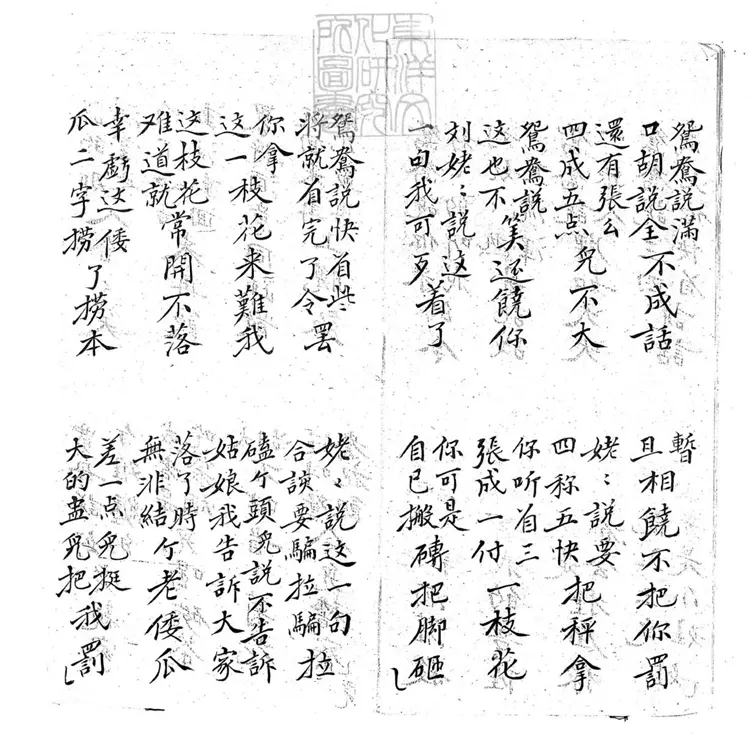 東洋文
化研究
所圖書
鴛鴦說滿口胡說全不成話
暫且相饒不把你罰
還有張么四成五点兒不大
姥〻說要四称五快把秤拿
鴛鴦說這也不筭还饒你
你听着三張成一付一枝花
刘姥〻說这一句我可歹着了
你可是自己搬磚把脚砸
鴛鴦說快着些將就着完了令罢
姥〻說這一句合該要騙拉騙拉
你拿这一枝花来難我
磕个頭兒說不告訴姑娘我告訴大家
这枝花难道就常開不落
落了時無非結个老倭瓜
幸虧这倭瓜二字撈了撈本
差一点兒挺大的盅兒把我罰